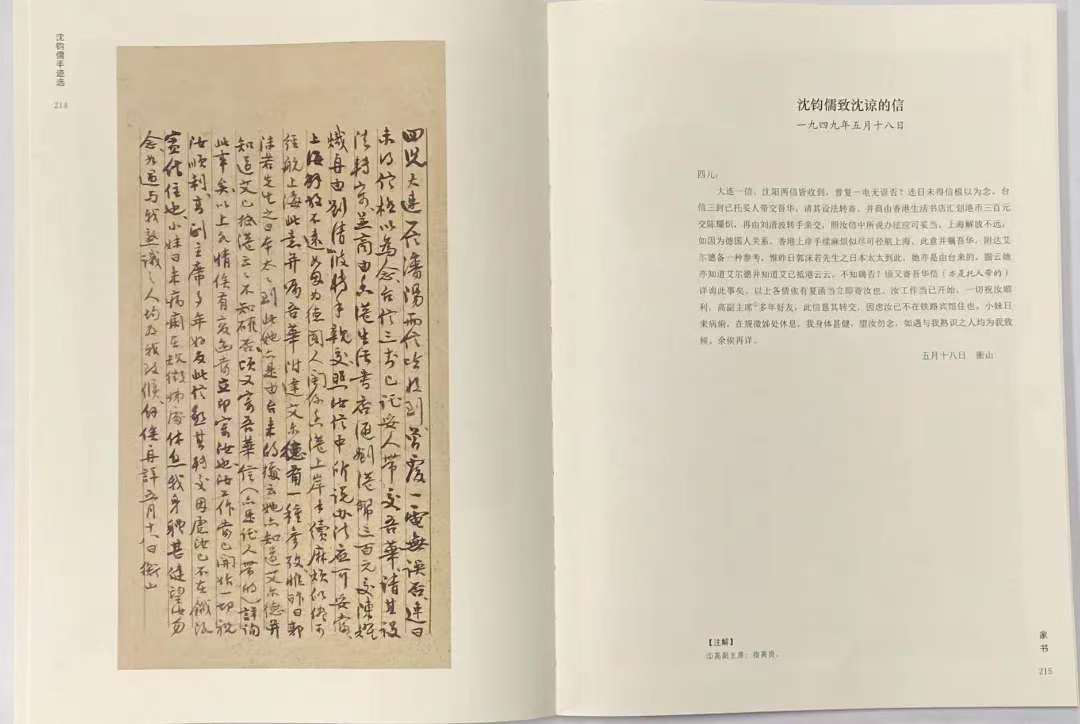 沈钧儒手迹选
214
四児大连一信瀋陽兩信皆收到曾覆一電無误否連日
未得信極以為念台信三封已託妥人帶交吾華請其設
法轉寄並商由香港生活書店匯劃港幣三百元交陳耀
熾再由劉清波轉手親交照汝信中所説办法应可妥當
上海解放不遠如因为德國人関係香港上岸手續麻烦似儘可
徑航上海此意并嘱吾華附達艾尔德备一種参攷惟昨日郭
沫若先生之日本太太到此她亦是由台来的據云她亦知道艾尔德并
知道艾已抵港云云不知確否頃又寄吾華信（亦是託人带的）詳询
此事矣以上各情俟有复函當立即寄汝也汝工作當已開始一切祝
汝順利高副主席多年好友此信託其轉交因虑汝已不在鐵路
賓馆住也小妹日来病痢在规徵姊處休息我身體甚健望汝勿
念如遇与我熟識之人均为我致候餘俟再詳五月十八日 衡山
沈钧儒致沈谅的信
一九四九年五月十八日
四儿：
大连一信，沈阳两信皆收到，曾复一电无误否？连日未得信极以为念。台
信三封已托妥人带交吾华，请其设法转寄，并商由香港生活书店汇划港币三百元
交陈耀炽，再由刘清波转手亲交，照汝信中所说办法应可妥当。上海解放不远，
如因为德国人关系，香港上岸手续麻烦似尽可径航上海，此意并嘱吾华，附达艾
尔德备一种参考，惟昨日郭沫若先生之日本太太到此，她亦是由台来的，据云她
亦知道艾尔德并知道艾已抵港云云，不知确否？顷又寄吾华信（亦是托人带的）
详询此事矣。以上各情俟有复函当立即寄汝也，汝工作当已开始，一切祝汝顺
利，高副主席①多年好友，此信恳其转交，因虑汝已不在铁路宾馆住也。小妹日
来病痢，在规徵姊处休息，我身体甚健，望汝勿念，如遇与我熟识之人均为我致
候，余俟再详。
五月十八日 衡山
【注解】
①高副主席：指高崇。
家书
215